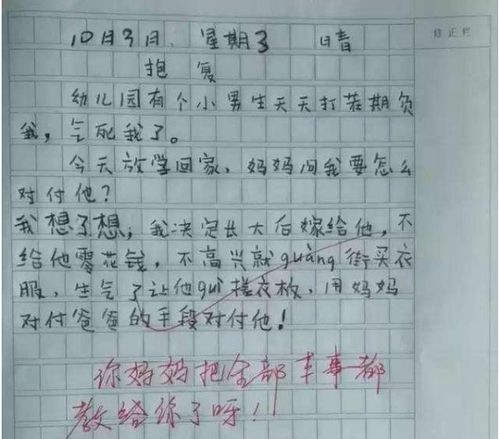 修正栏
10月3日. 星期3 晴
抱复
幼儿园有个小男生天天打若期负
我，气死我了。
今天放学回家，妈妈问我要怎么
对付他？
我想了想，我决定长大后嫁给他，不
给他零花钱，不高兴就guàng街买衣
服，生气了让他guì搓衣板，用妈妈
对付爸爸的手段对付他！
你妈妈把全部本事都
教给你了呀！